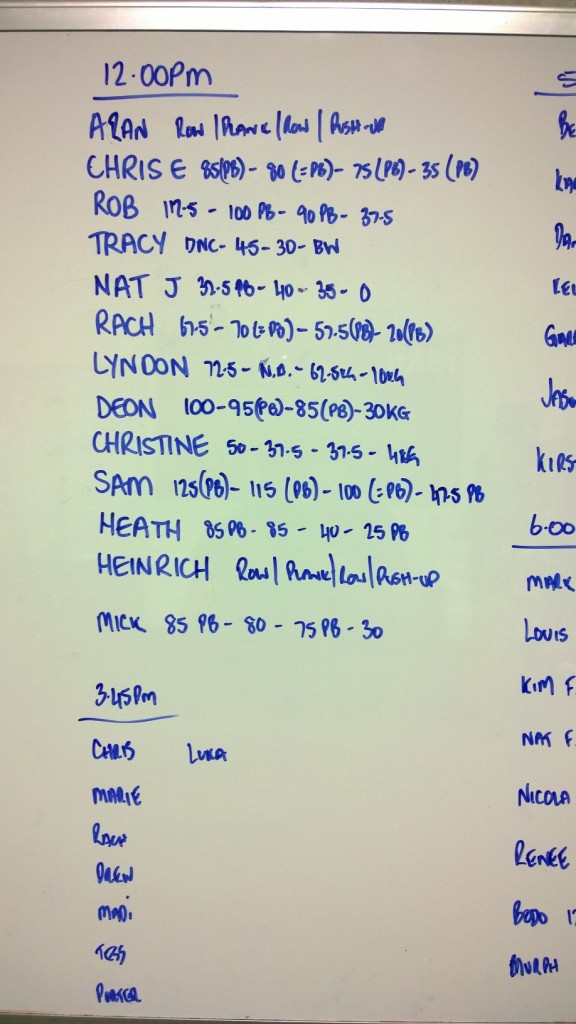 12.00pm
ARAN ROW | PLANK | ROW | PUSH-UP
CHRIS E 85(PB) - 80 (=PB) - 75 (PB) - 35 (PB)
ROB 112.5 - 100 PB - 90 PB - 37.5
TRACY DNC - 45 - 30 - BW
NAT J 32.5 PB - 40 - 35 - 0
RACH 67.5 - 70 (=PB) - 57.5(PB) - 20(PB)
LYNDON 72.5 - N.D. - 62.5KG - 10KG
DEON 100-95(PB)-85(PB)-30KG
CHRISTINE 50 - 37.5 - 37.5 - 4KG
SAM 125(PB) - 115 (PB) - 100 (=PB) - 47.5 PB
HEATH 85 PB - 85 - 40 - 25 PB
HEINRICH ROW | PLANK | ROW | PUSH-UP
MICK 85 PB - 80 - 75 PB - 30
3.45pm
CHRIS LUKA
MARIE
RACH
DREW
MADI
TESS
PORTER
5
BE
DA
KIRS
6.00
MARK
LOUIS
KIM F
NAT F
NICOLA
RENEE
BODO 1
MURPH